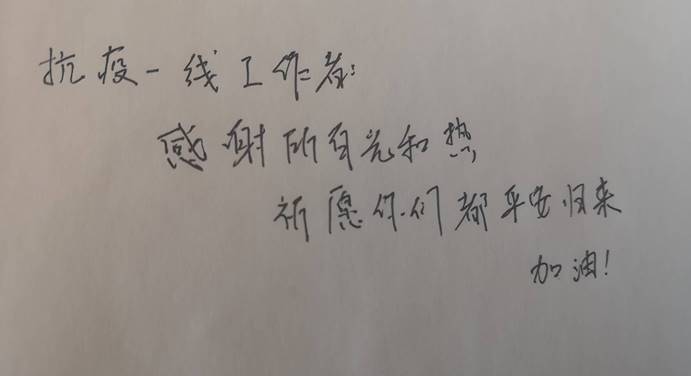 抗疫一线工作者:
感射所有光和热,
祈愿你们都平安归来
加油!